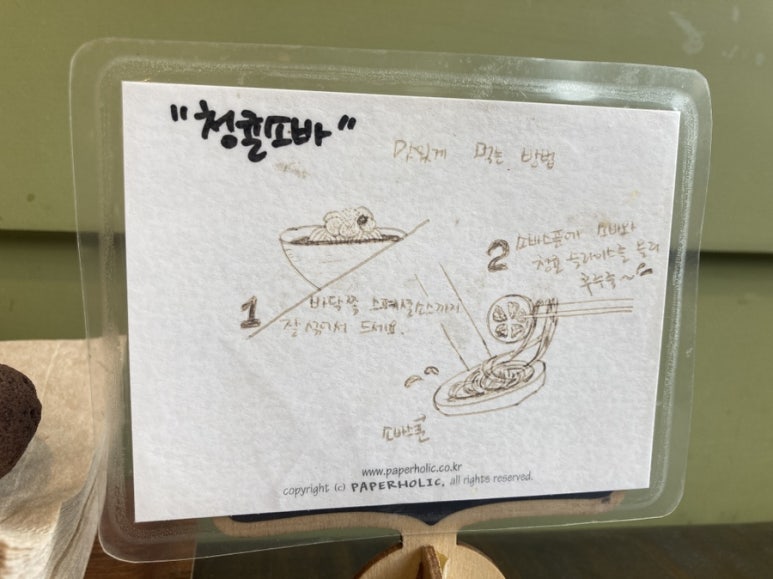 "청귤소바"
맛있게 먹는 방법
1
바닥쪽 스페셜소스까지
잘 섞어서 드세요.
2
소바스푼에 소바와
청귤 슬라이스를 올려
후루룩~
소바스푼
www.paperholic.co.kr
copyright (c) PAPERHOLIC. all rights reserved.